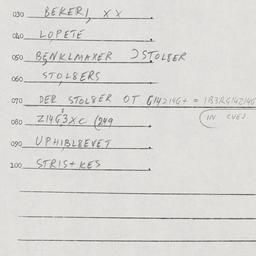 030 BEKER1, XX
040 LOPETE
050 BENKLMAXER STOLBER
060 STOLBERS
070 DER STOLBER OT G14214G+ = 1B3RG14Z14G
080 Z14G3XC (249 IN CVEJ
090 UPHIBLBEVET
100 STRIS+KES